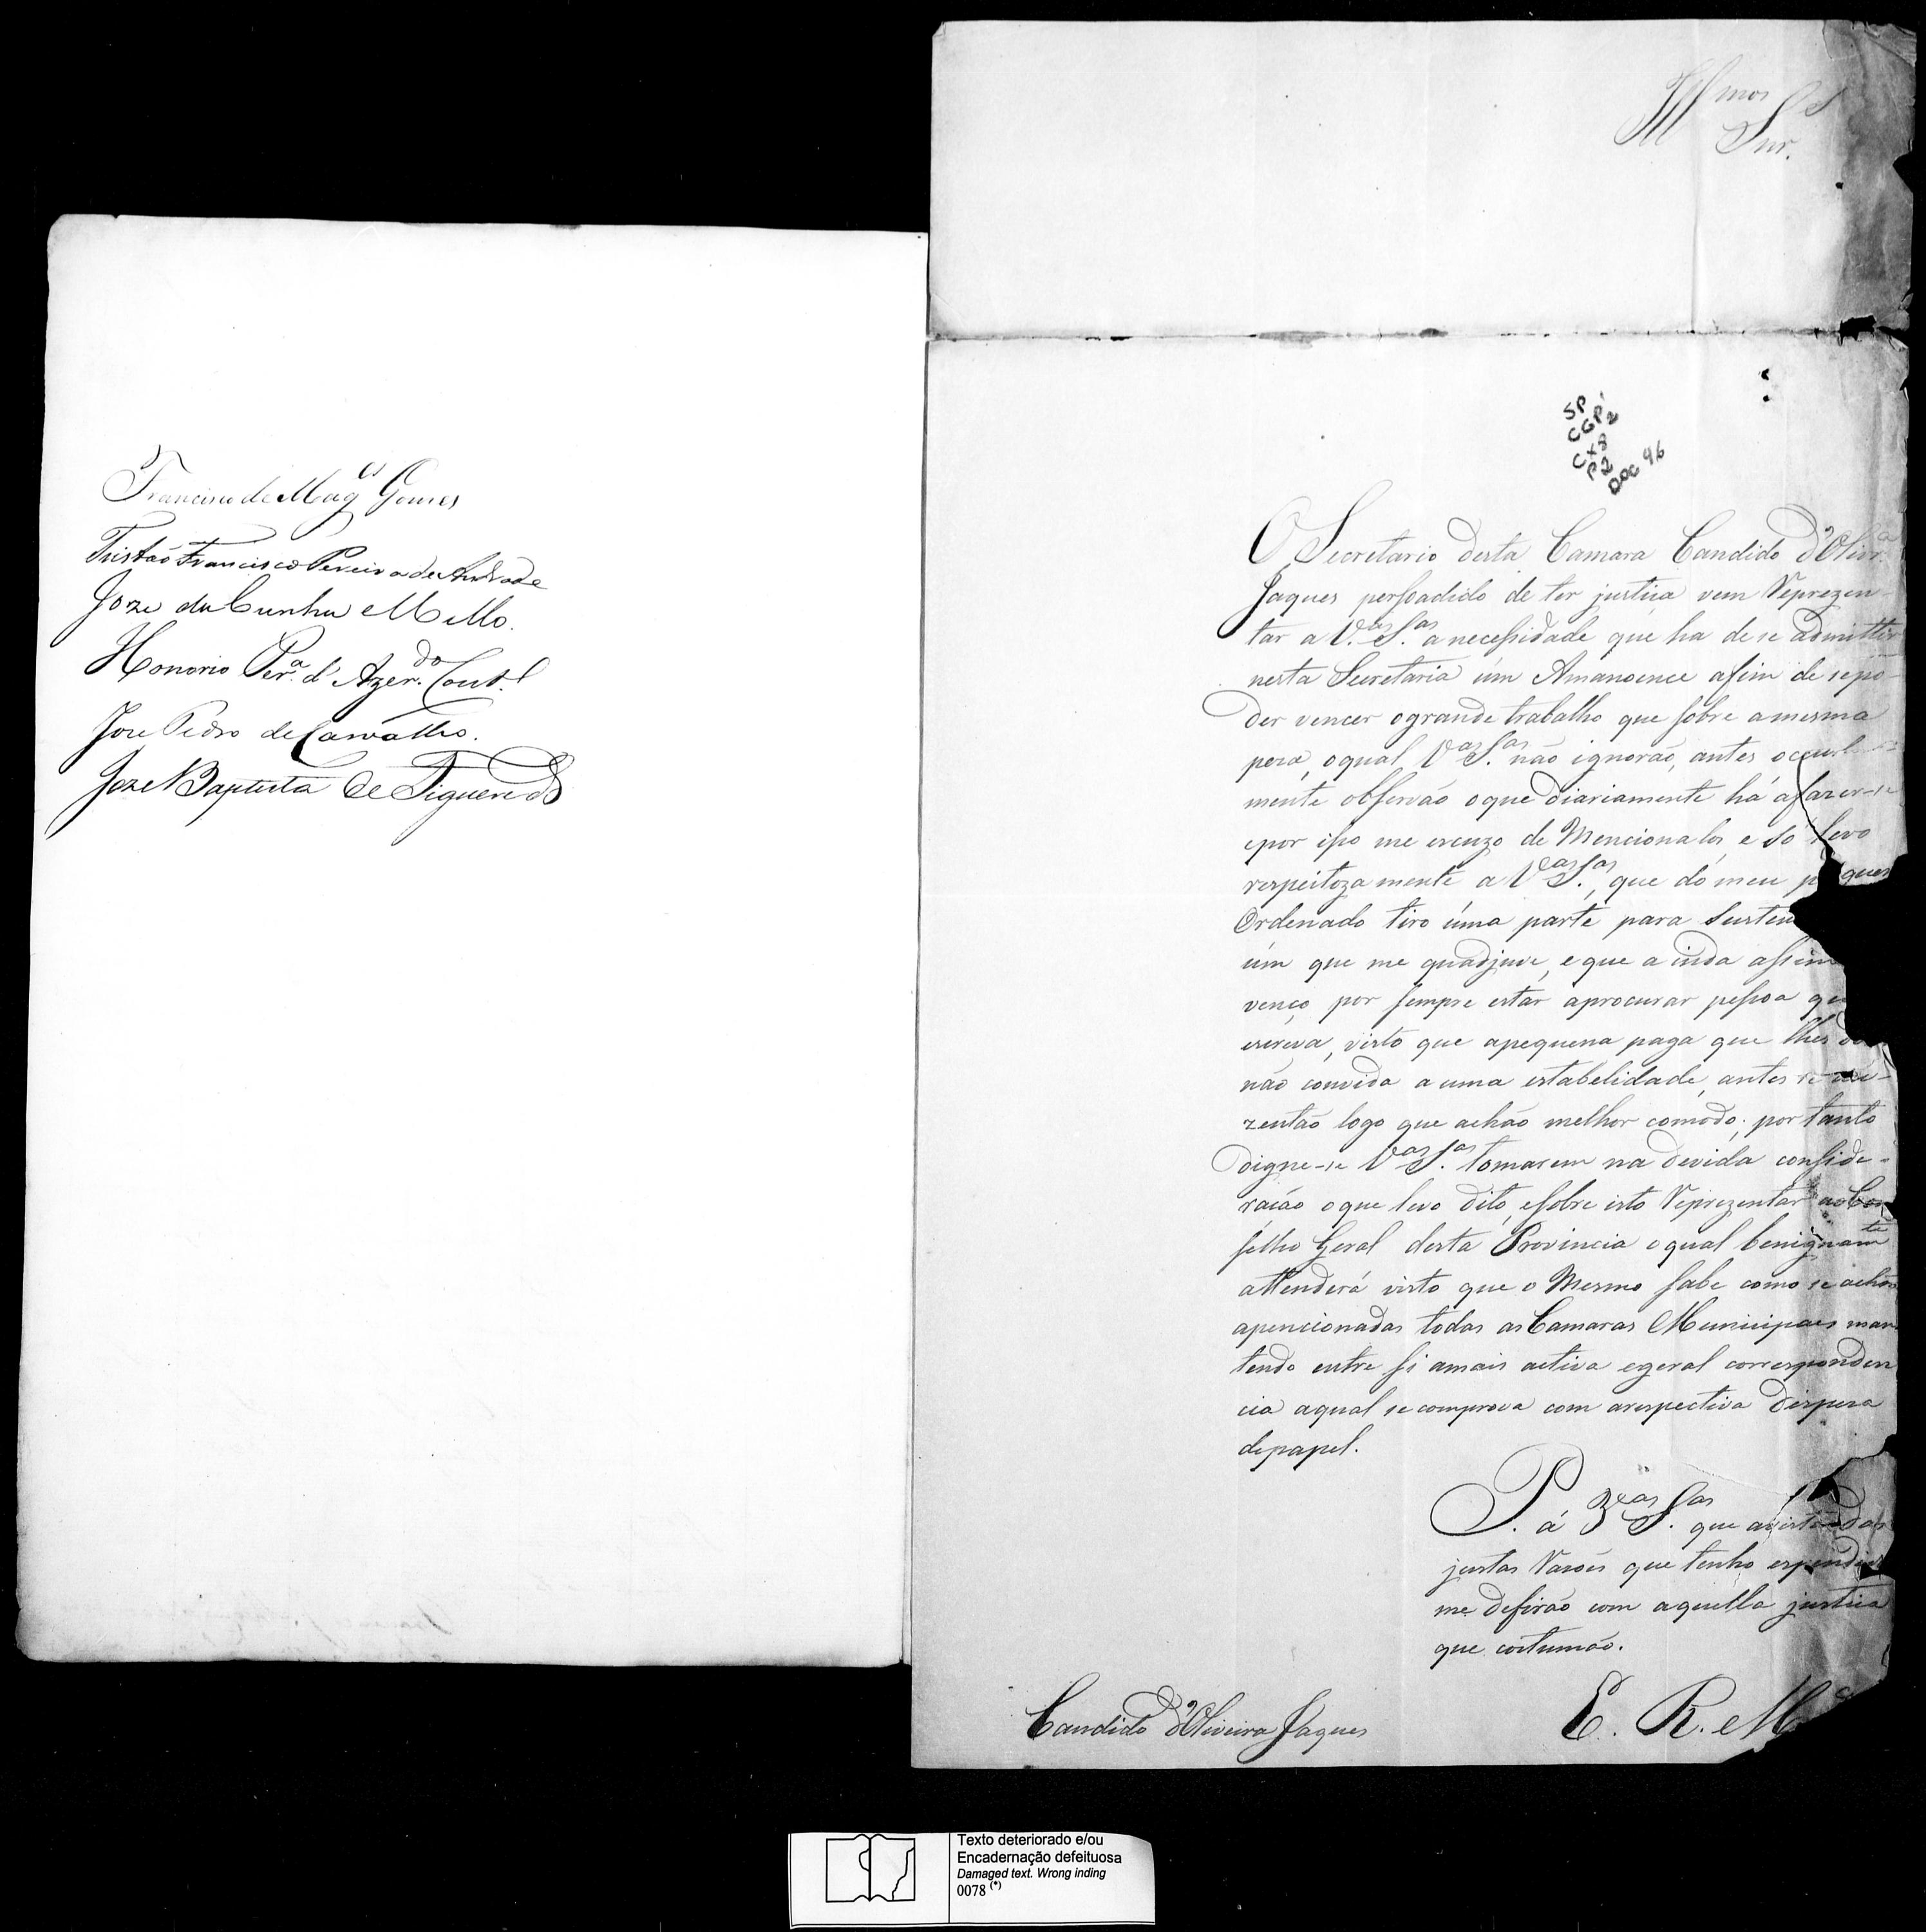 Francisco de Mag.es Gomes
Tristão Francisco Pereira de Andrade
Joze da Cunha Mello.
Honorio Per.a d'Azer.do Cout.
Joze Pedro de Carvalho.
Joze Baptista de Figueredo
Ill.mos Snr.es
SP
CGP2
CX8
P2
DOC 46
O Secretario desta Camara Candido d'Olivr.a
Jaques persoadido de ter justiça vem Reprezen-
tar a V.as S.as a necessidade que ha de se admittir
nesta Secretaria úm Amanoence afim de se po-
der vencer o grande trabalho que sobre a mesma
peza, o qual V.as S.as não ignorão, antes
mente observão o que diariamente há a fazer-se
e por isso me escuzo de Mencionalos, e só levo
respeitozamente a V.as S.as, que do meu
Ordenado tiro úma parte para
úm que me quadjuve, e que a inda assim
venço, por sempre estar a procurar pessoa
escreva, visto que a pequena paga que lhes
não convida a uma estabelidade, antes
zentão logo que achão melhor comodo; por tanto
digne-se V.as S.as tomarem na devida conside-
ração o que levo dito, e sobre isto Reprezentar ao Con
selho Geral desta Provincia o qual benignam.te
attenderá visto que o Mesmo sabe como se achão
apencionadas todas as Camaras Municipaes man
tendo entre si a mais activa e geral corresponden
cia a qual se comprova com a respectiva despesa
de papel.
P. á V.as S.as que a vista das
justas Razoẽs que tenho
me defirão com aquella justiça
que costumão.
E. R. M.ce
Candido d'Oliveira Jaques
Texto deteriorado e/ou
Encadernação defeituosa
Damaged text. Wrong inding
0078 (*)